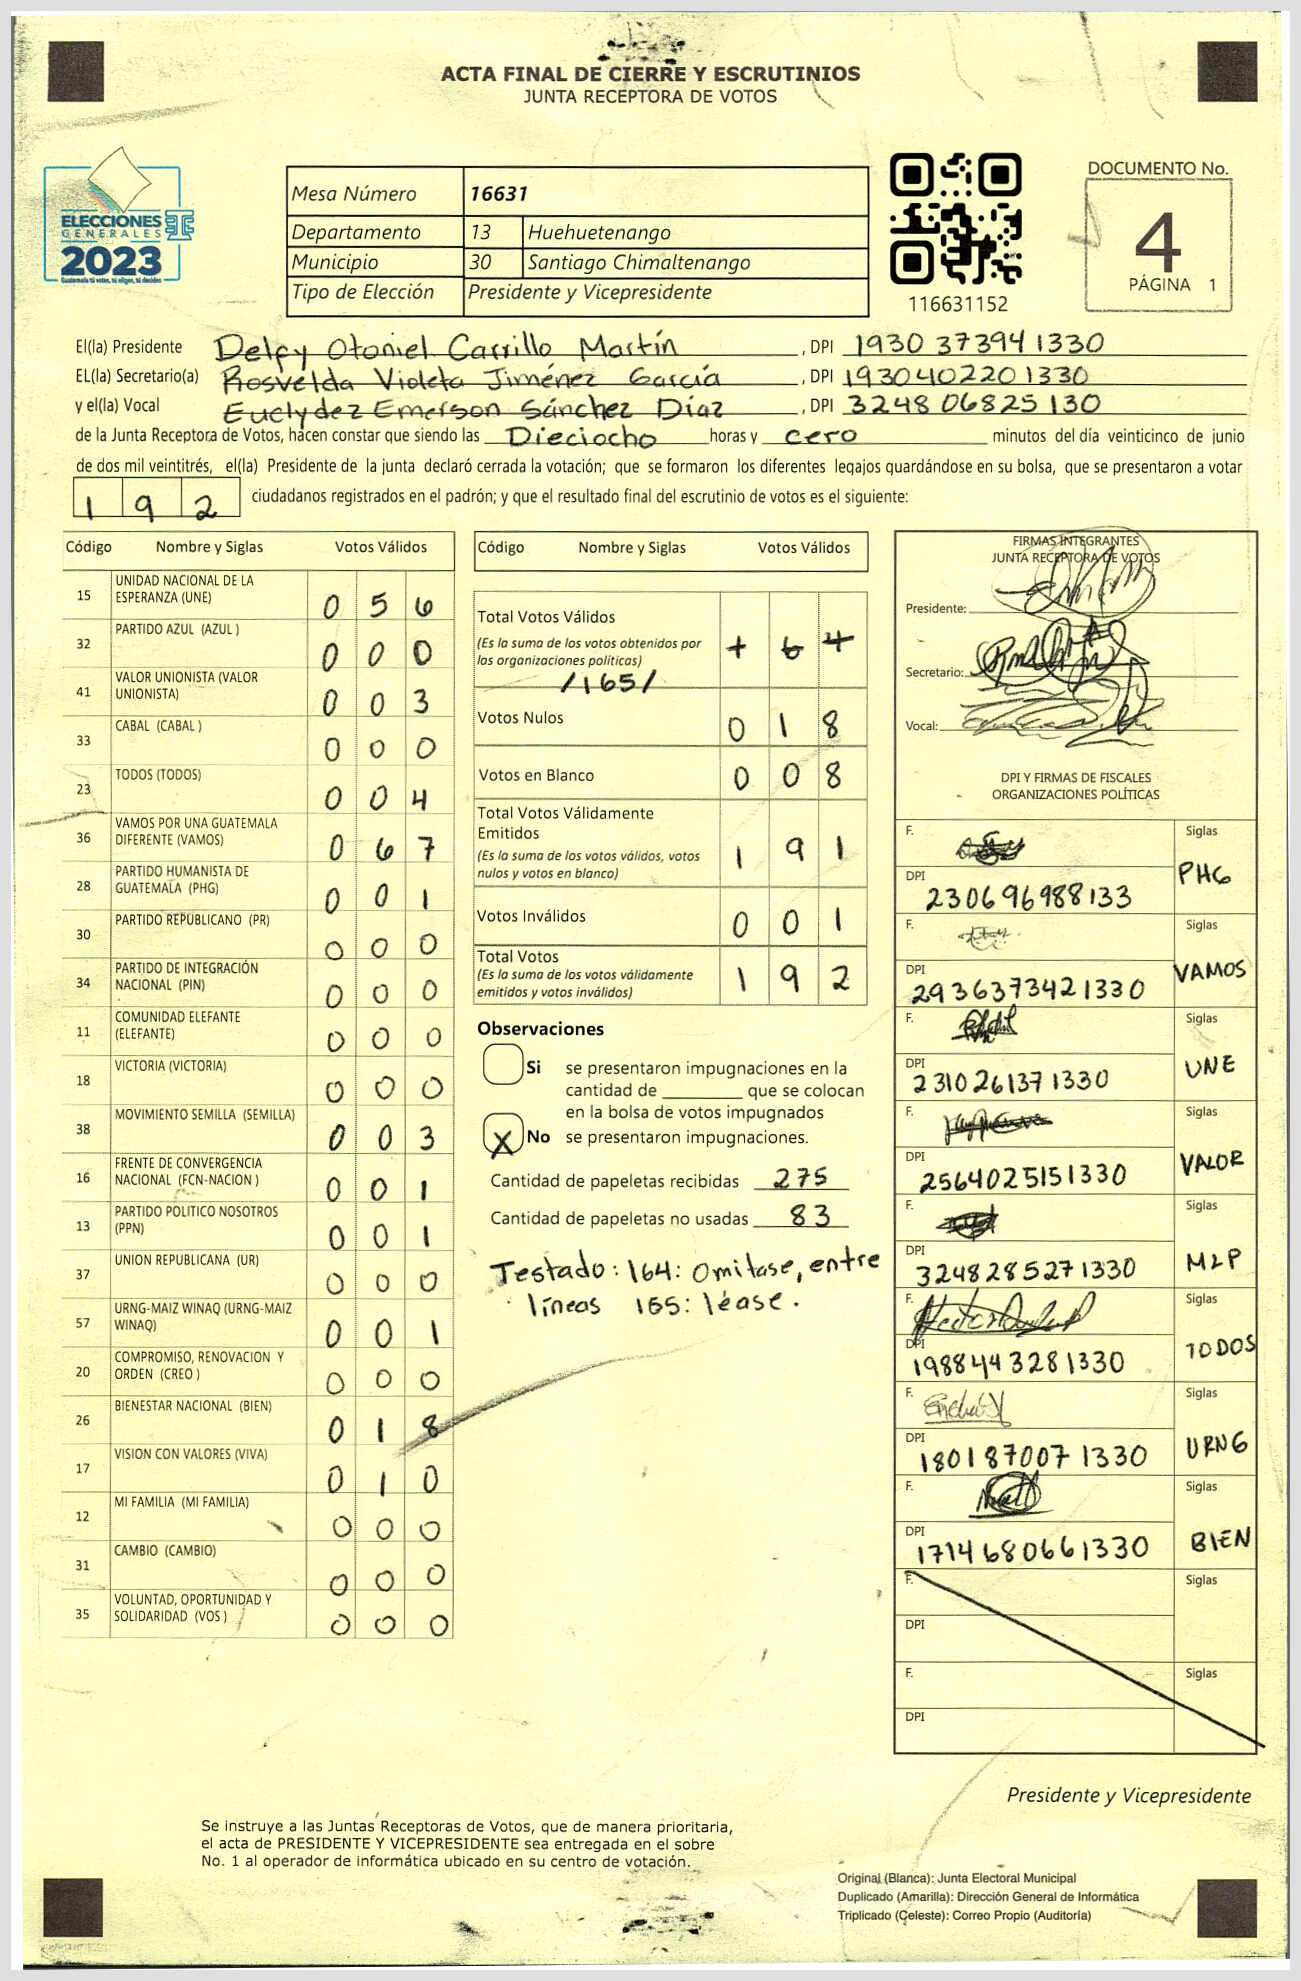 ACTA FINAL DE CIERRE Y ESCRUTINIOS
JUNTA RECEPTORA DE VOTOS
ELECCIONES
GENERALES
2023
Guatemala tú votas, tú eliges, tú decides
Mesa Número 16631
Departamento 13 Huehuetenango
Municipio 30 Santiago Chimaltenango
Tipo de Elección Presidente y Vicepresidente
116631152
DOCUMENTO No.
4
PÁGINA 1
El(la) Presidente Delfy Otoniel Carrillo Martín, DPI 1930 37394 1330
EL(la) Secretario(a) Rosvelda Violeta Jiménez García, DPI 1930402201330
y el(la) Vocal Euclydez Emerson Sánchez Díaz, DPI 3248 06825 130
de la Junta Receptora de Votos, hacen constar que siendo las Dieciocho horas y cero minutos del día veinticinco de junio
de dos mil veintitrés, el(la) Presidente de la junta declaró cerrada la votación; que se formaron los diferentes legajos guardándose en su bolsa, que se presentaron a votar
192 ciudadanos registrados en el padrón; y que el resultado final del escrutinio de votos es el siguiente:
Código Nombre y Siglas Votos Válidos
15 UNIDAD NACIONAL DE LA ESPERANZA (UNE) 056
32 PARTIDO AZUL (AZUL ) 000
41 VALOR UNIONISTA (VALOR UNIONISTA) 003
33 CABAL (CABAL ) 000
23 TODOS (TODOS) 004
36 VAMOS POR UNA GUATEMALA DIFERENTE (VAMOS) 067
28 PARTIDO HUMANISTA DE GUATEMALA (PHG) 001
30 PARTIDO REPUBLICANO (PR) 000
34 PARTIDO DE INTEGRACIÓN NACIONAL (PIN) 000
11 COMUNIDAD ELEFANTE (ELEFANTE) 000
18 VICTORIA (VICTORIA) 000
38 MOVIMIENTO SEMILLA (SEMILLA) 003
16 FRENTE DE CONVERGENCIA NACIONAL (FCN-NACION ) 001
13 PARTIDO POLITICO NOSOTROS (PPN) 001
37 UNION REPUBLICANA (UR) 000
57 URNG-MAIZ WINAQ (URNG-MAIZ WINAQ) 001
20 COMPROMISO, RENOVACION Y ORDEN (CREO ) 000
26 BIENESTAR NACIONAL (BIEN) 018
17 VISION CON VALORES (VIVA) 010
12 MI FAMILIA (MI FAMILIA) 000
31 CAMBIO (CAMBIO) 000
35 VOLUNTAD, OPORTUNIDAD Y SOLIDARIDAD (VOS ) 000
Código Nombre y Siglas Votos Válidos
Total Votos Válidos 164
(Es la suma de los votos obtenidos por
las organizaciones políticas)
/165/
Votos Nulos 018
Votos en Blanco 008
Total Votos Válidamente
Emitidos 191
(Es la suma de los votos válidos, votos
nulos y votos en blanco)
Votos Inválidos 001
Total Votos 192
(Es la suma de los votos válidamente
emitidos y votos inválidos)
Observaciones
Si se presentaron impugnaciones en la
cantidad de ________ que se colocan
en la bolsa de votos impugnados
X No se presentaron impugnaciones.
Cantidad de papeletas recibidas 275
Cantidad de papeletas no usadas 83
Testado: 164: omitase, entre
líneas 165: léase.
FIRMAS INTEGRANTES
JUNTA RECEPTORA DE VOTOS
Presidente:
Secretario:
Vocal:
DPI Y FIRMAS DE FISCALES
ORGANIZACIONES POLÍTICAS
F. Siglas
PHG
DPI 230696988133
F. Siglas
VAMOS
DPI 2936373421330
F. Siglas
UNE
DPI 2310261371330
F. Siglas
VALOR
DPI 2564025151330
F. Siglas
MLP
DPI 3248285271330
F. Siglas
TODOS
DPI 1988443281330
F. Siglas
URNG
DPI 1801870071330
F. Siglas
BIEN
DPI 1714680661330
F. Siglas
DPI
F. Siglas
DPI
Presidente y Vicepresidente
Se instruye a las Juntas Receptoras de Votos, que de manera prioritaria,
el acta de PRESIDENTE Y VICEPRESIDENTE sea entregada en el sobre
No. 1 al operador de informática ubicado en su centro de votación.
Original (Blanca): Junta Electoral Municipal
Duplicado (Amarilla): Dirección General de Informática
Triplicado (Celeste): Correo Propio (Auditoría)